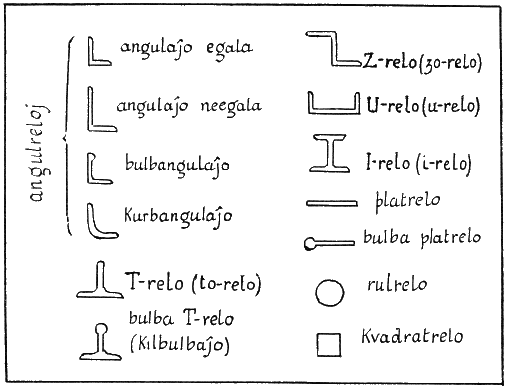 angulreloj
angulaĵo egala
angulaĵo neegala
bulbangulaĵo
Kurbangulaĵo
T-relo (to-relo)
bulba T-relo
(Kilbulbaĵo)
Z-relo (zo-relo)
U-relo (u-relo)
I-relo (i-relo)
platrelo
bulba platrelo
rulrelo
Kvadratrelo